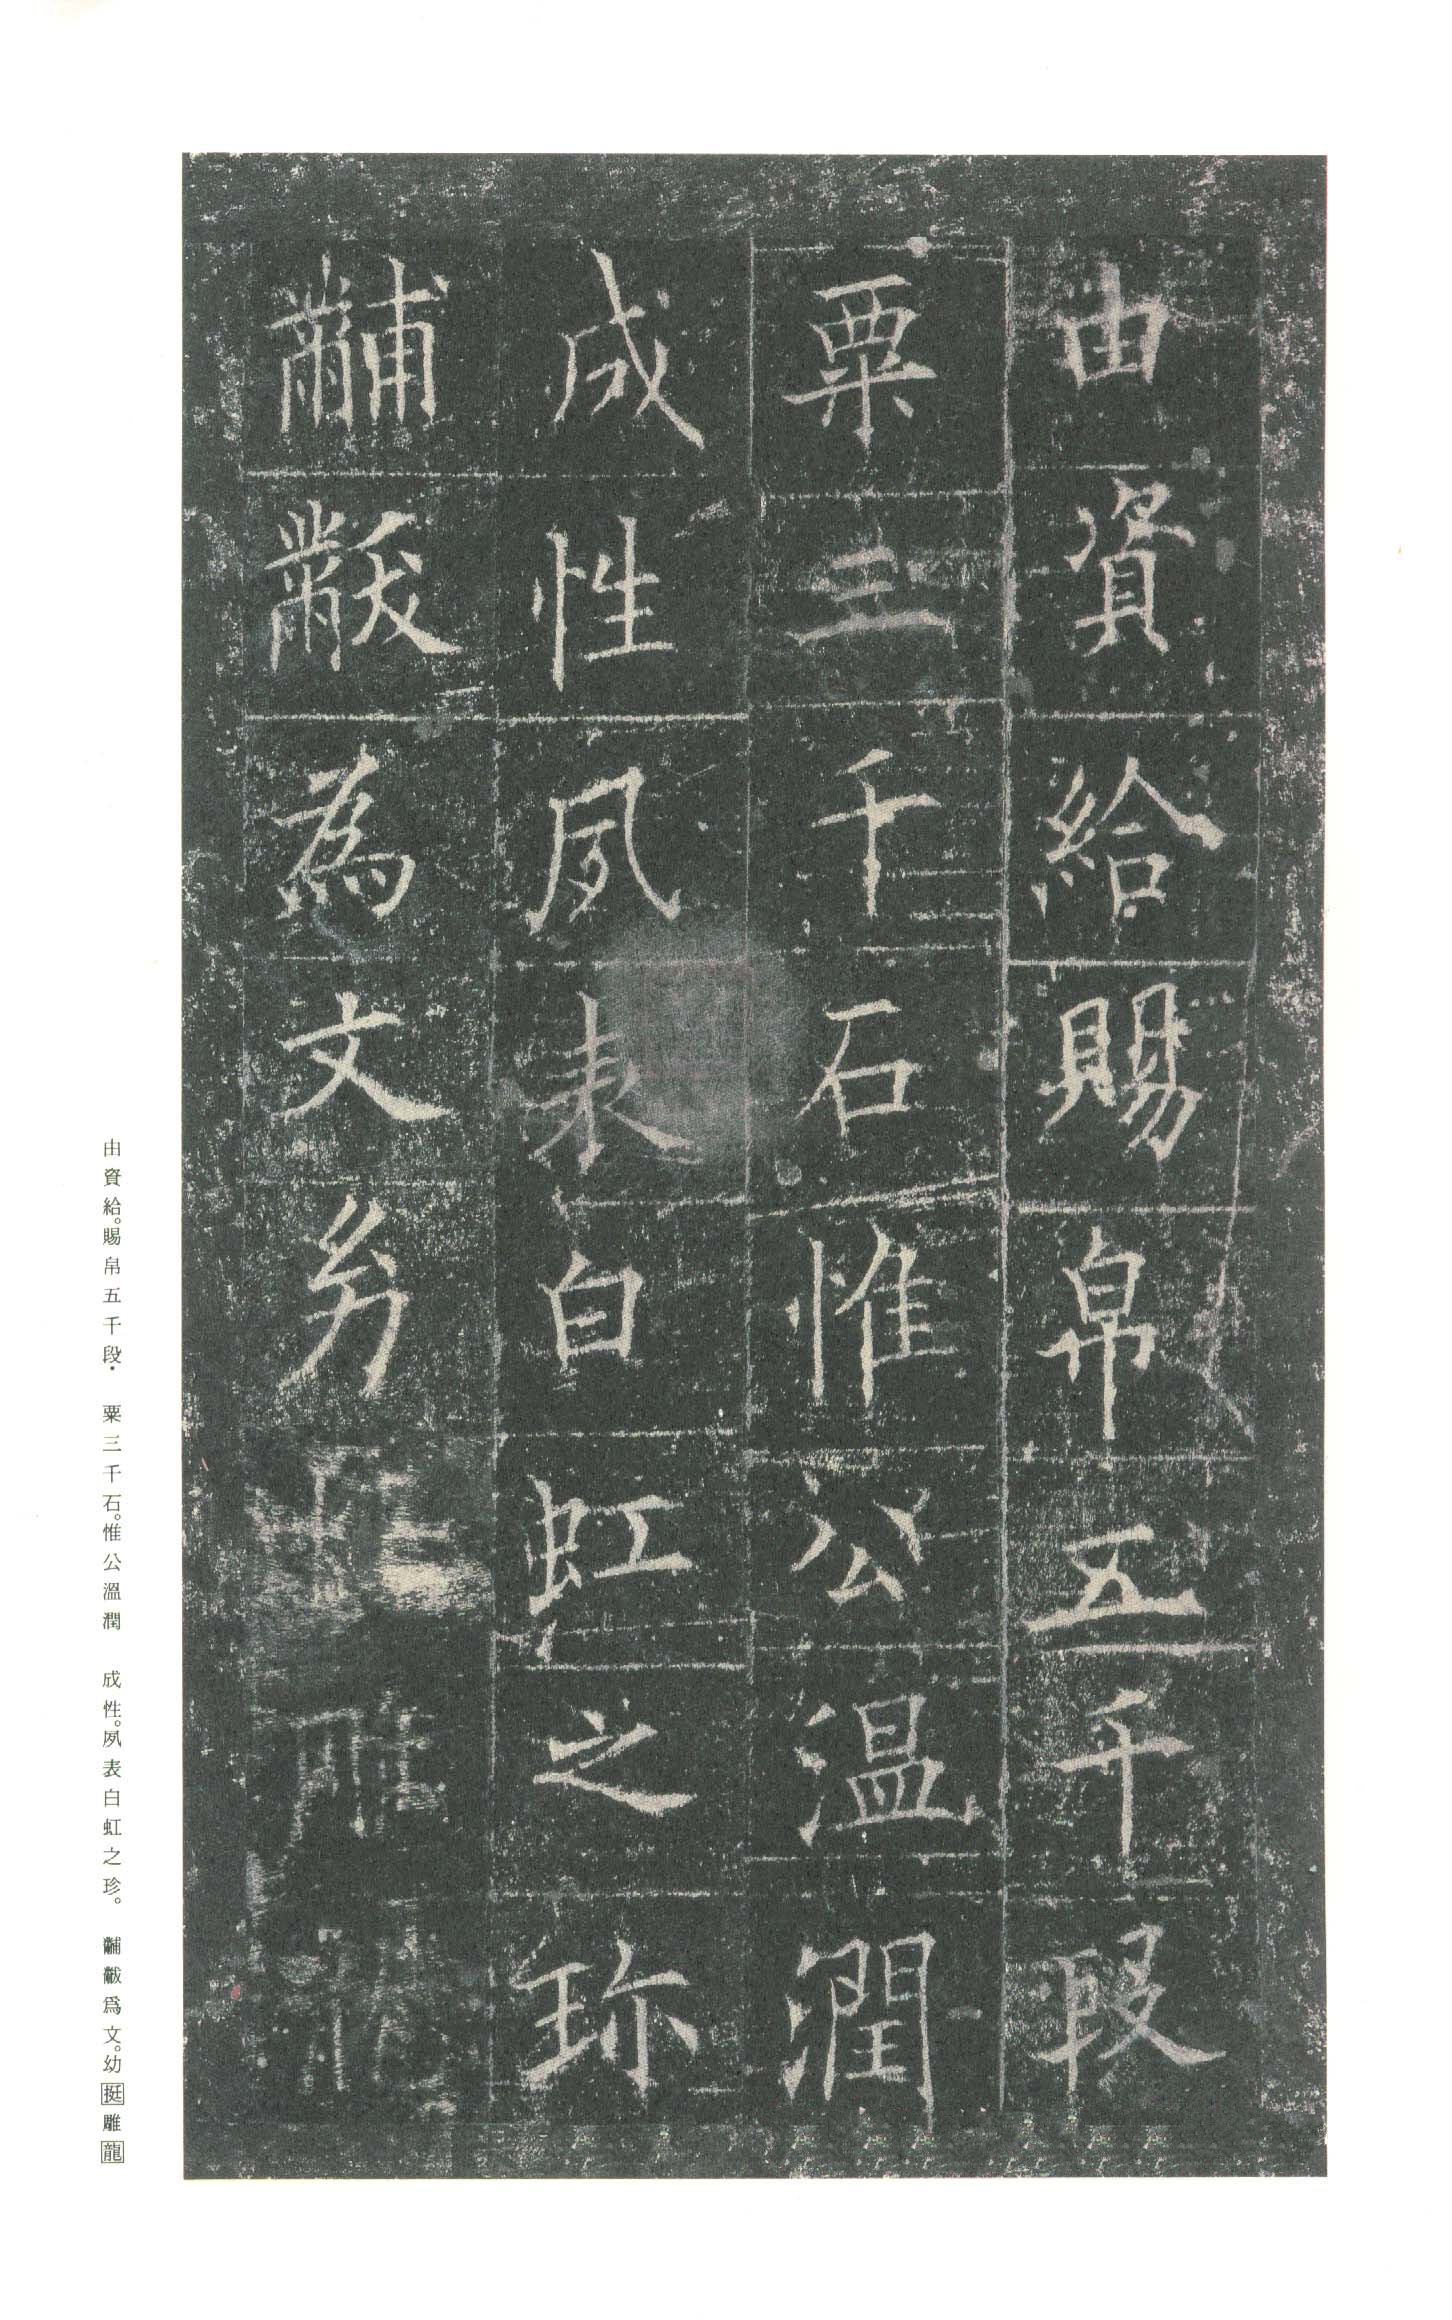 由資給賜帛五千段
粟三千石惟公溫潤
成性夙表白虹之珍
黼黻為文幼
由資給。賜帛五千段· 粟三千石。惟公溫潤 成性。夙表白虹之珍。 黼黻爲文。幼挺雕龍